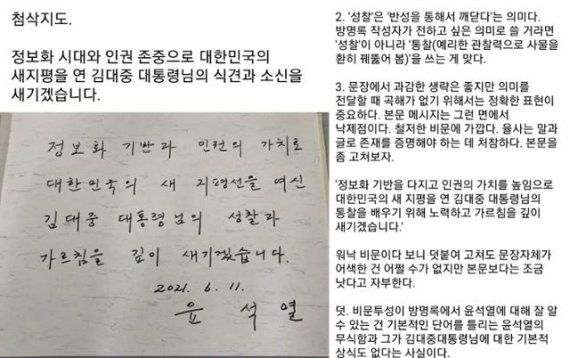 첨삭지도.
정보화 시대와 인권 존중으로 대한민국의
새지평을 연 김대중 대통령님의 식견과 소신을
새기겠습니다.
정보화 기반과 인권의 가치로
대한민국의 새 지평선을 여신
김대중 대통령님의 성찰과
가르침을 깊이 새기겠습니다.
2021. 6. 11.
윤 석 열
2. '성찰'은 '반성을 통해서 깨닫다'는 의미다.
방명록 작성자가 전하고 싶은 의미로 쓸 거라면
'성찰'이 아니라 '통찰(예리한 관찰력으로 사물을
환히 꿰뚫어 봄)'을 쓰는 게 맞다.
3. 문장에서 과감한 생략은 좋지만 의미를
전달할 때 곡해가 없기 위해서는 정확한 표현이
중요하다. 본문 메시지는 그런 면에서
낙제점이다. 철저한 비문에 가깝다. 율사는 말과
글로 존재를 증명해야 하는 데 처참하다. 본문을
좀 고쳐보자.
'정보화 기반을 다지고 인권의 가치를 높임으로
대한민국의 새 지평을 연 김대중 대통령님의
통찰을 배우기 위해 노력하고 가르침을 깊이
새기겠습니다.'
워낙 비문이다 보니 덧붙여 고쳐도 문장자체가
어색한 건 어쩔 수가 없지만 본문보다는 조금
낫다고 자부한다.
덧. 비문투성이 방명록에서 윤석열에 대해 잘 알
수 있는 건 기본적인 단어를 틀리는 윤석열의
무식함과 그가 김대중대통령에 대한 기본적
상식도 없다는 사실이다.